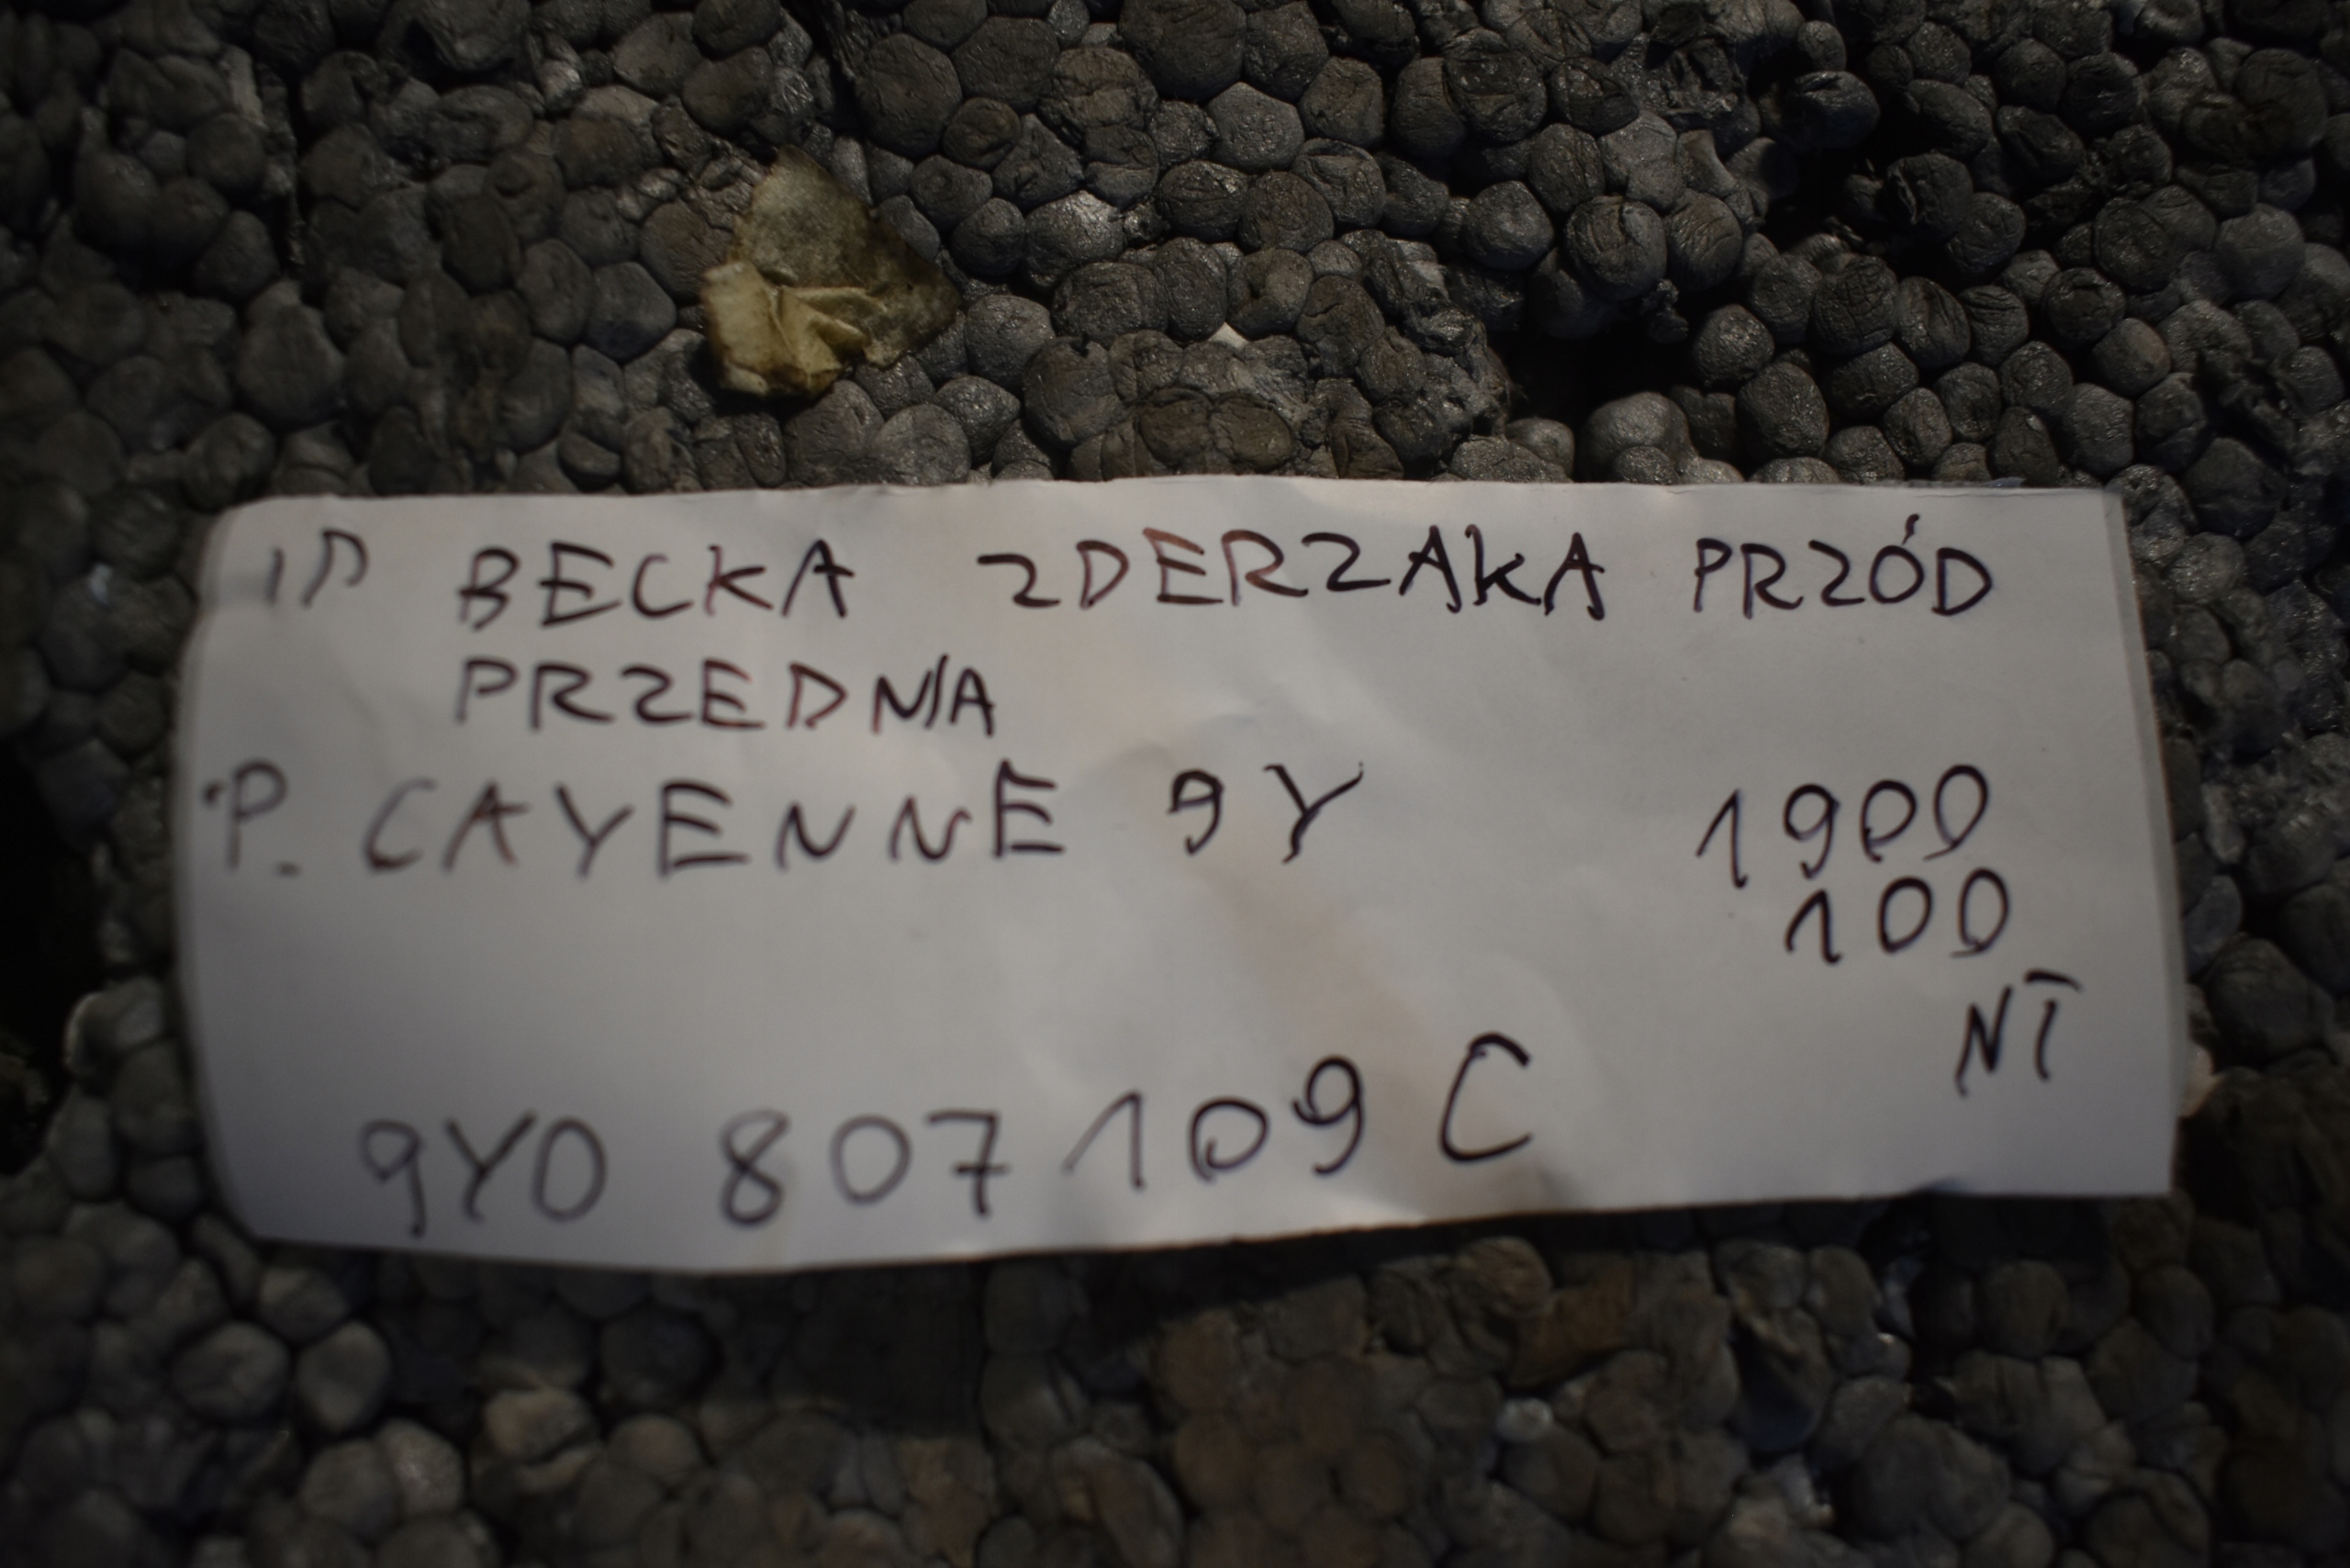 BECKA ZDERZAKA PRZÓD
PRZEDNIA
P. CAYENNE 9Y
1900
100
NT
9Y0 807 109 C